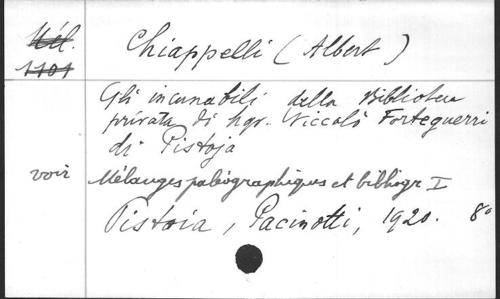 Mél. Chiappelli (Albert)
1101
Gli incunabili della Biblioteca
privata di Mgr. Niccolò Forteguerri
di Pistoja
voir Mélanges paléographiques et bibliogr I
Pistoia, Pacinotti, 1920. 8°